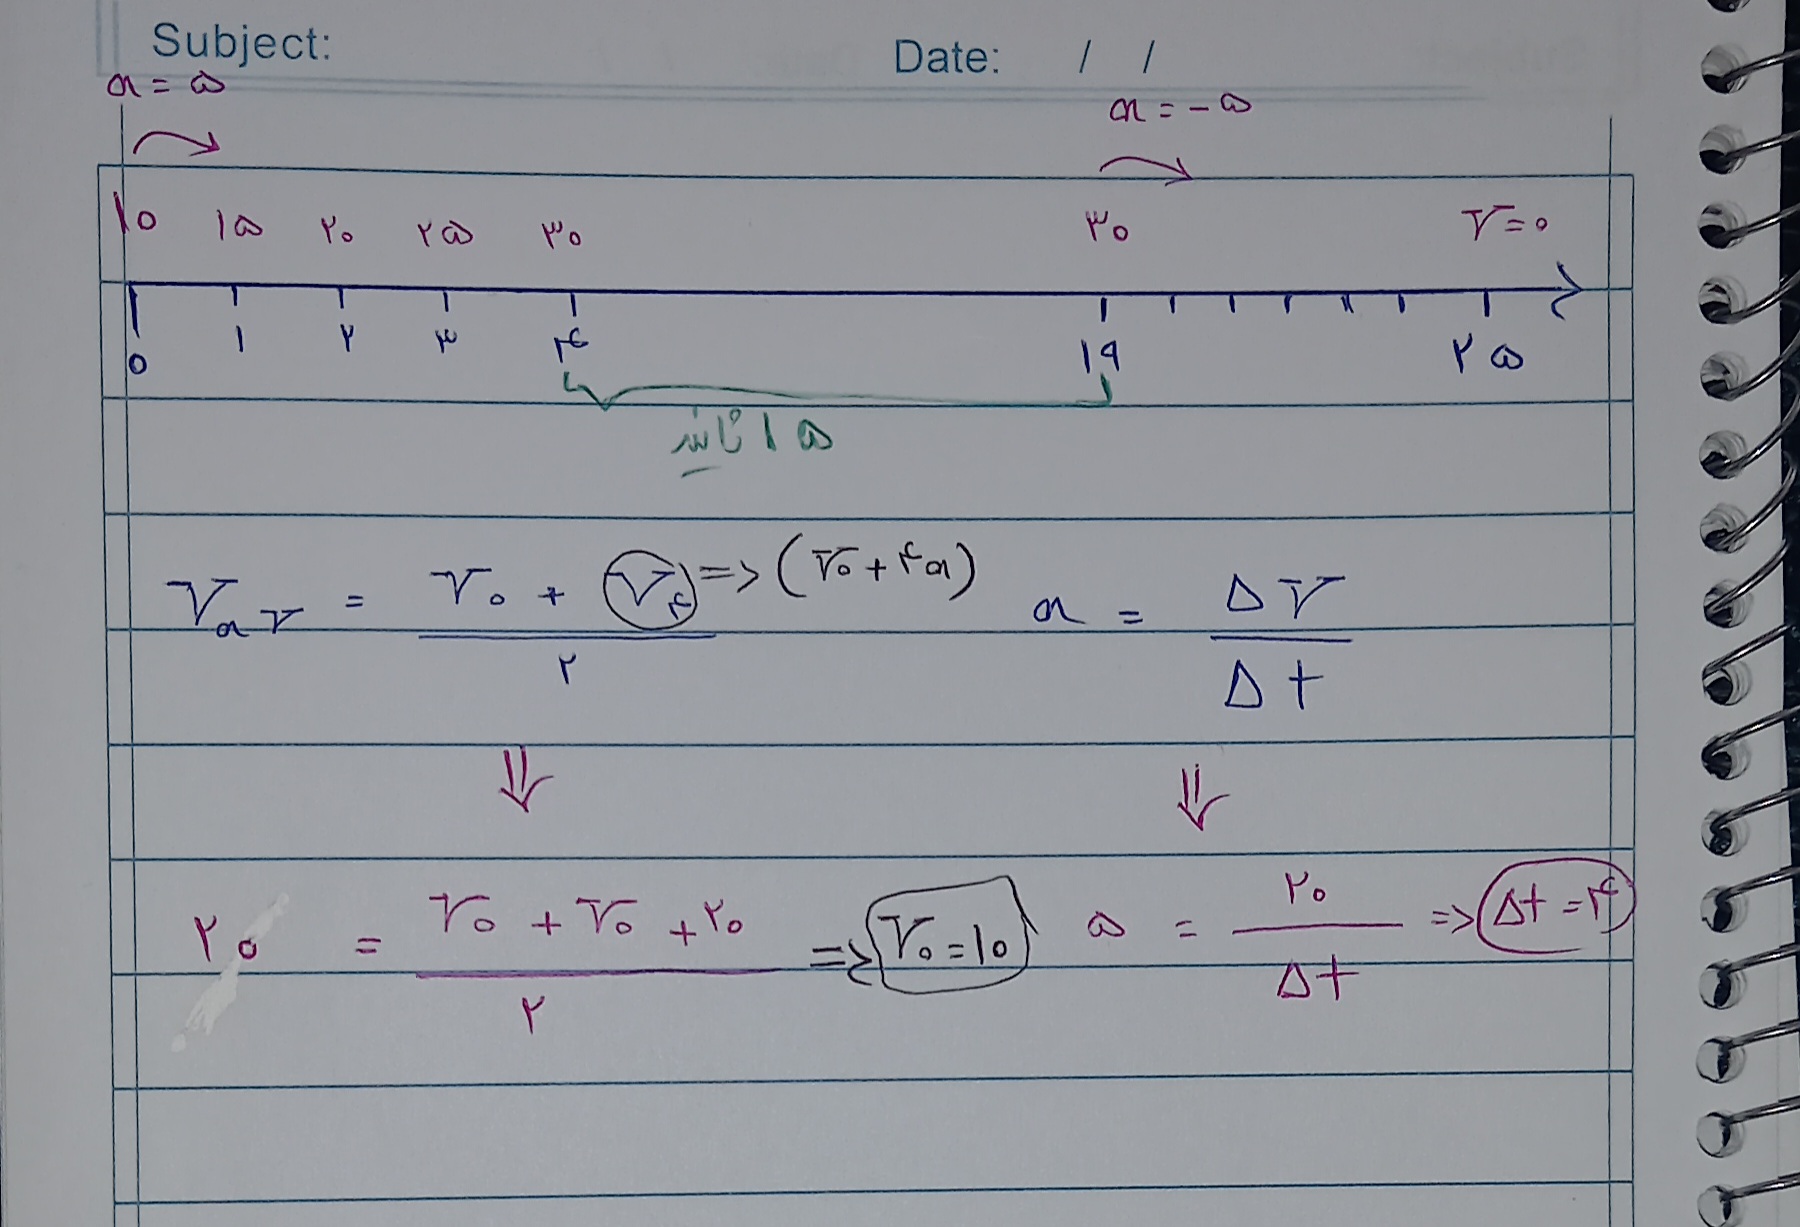 Subject: Date: / /
a = ۵ a = - ۵
۱۰ ۱۵ ۲۰ ۲۵ ۳۰ ۳۰ V = ۰
۰ ۱ ۲ ۳ ۴ ۱۹ ۲۵
۱۵ ثانیه
Vav = (V۰ + V۴) / ۲ => (V۰ + ۴a) a = ΔV / Δt
⇓ ⇓
۲۰ = (V۰ + V۰ + ۲۰) / ۲ => V۰ = ۱۰ ۵ = ۲۰ / Δt => Δt = ۴